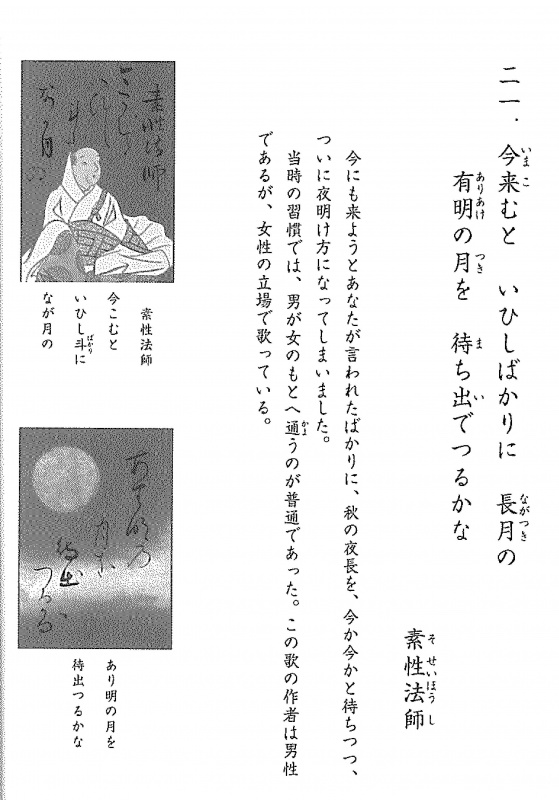 二一．今来むと　いひしばかりに　長月の
有明の月を　待ち出でつるかな
素性法師
今にも来ようとあなたが言われたばかりに、秋の夜長を、今か今かと待ちつつ、
ついに夜明け方になってしまいました。
当時の習慣では、男が女のもとへ通うのが普通であった。この歌の作者は男性
であるが、女性の立場で歌っている。
素性法師
今こむと
いひし斗に
なが月の
あり明の月を
待出つるかな